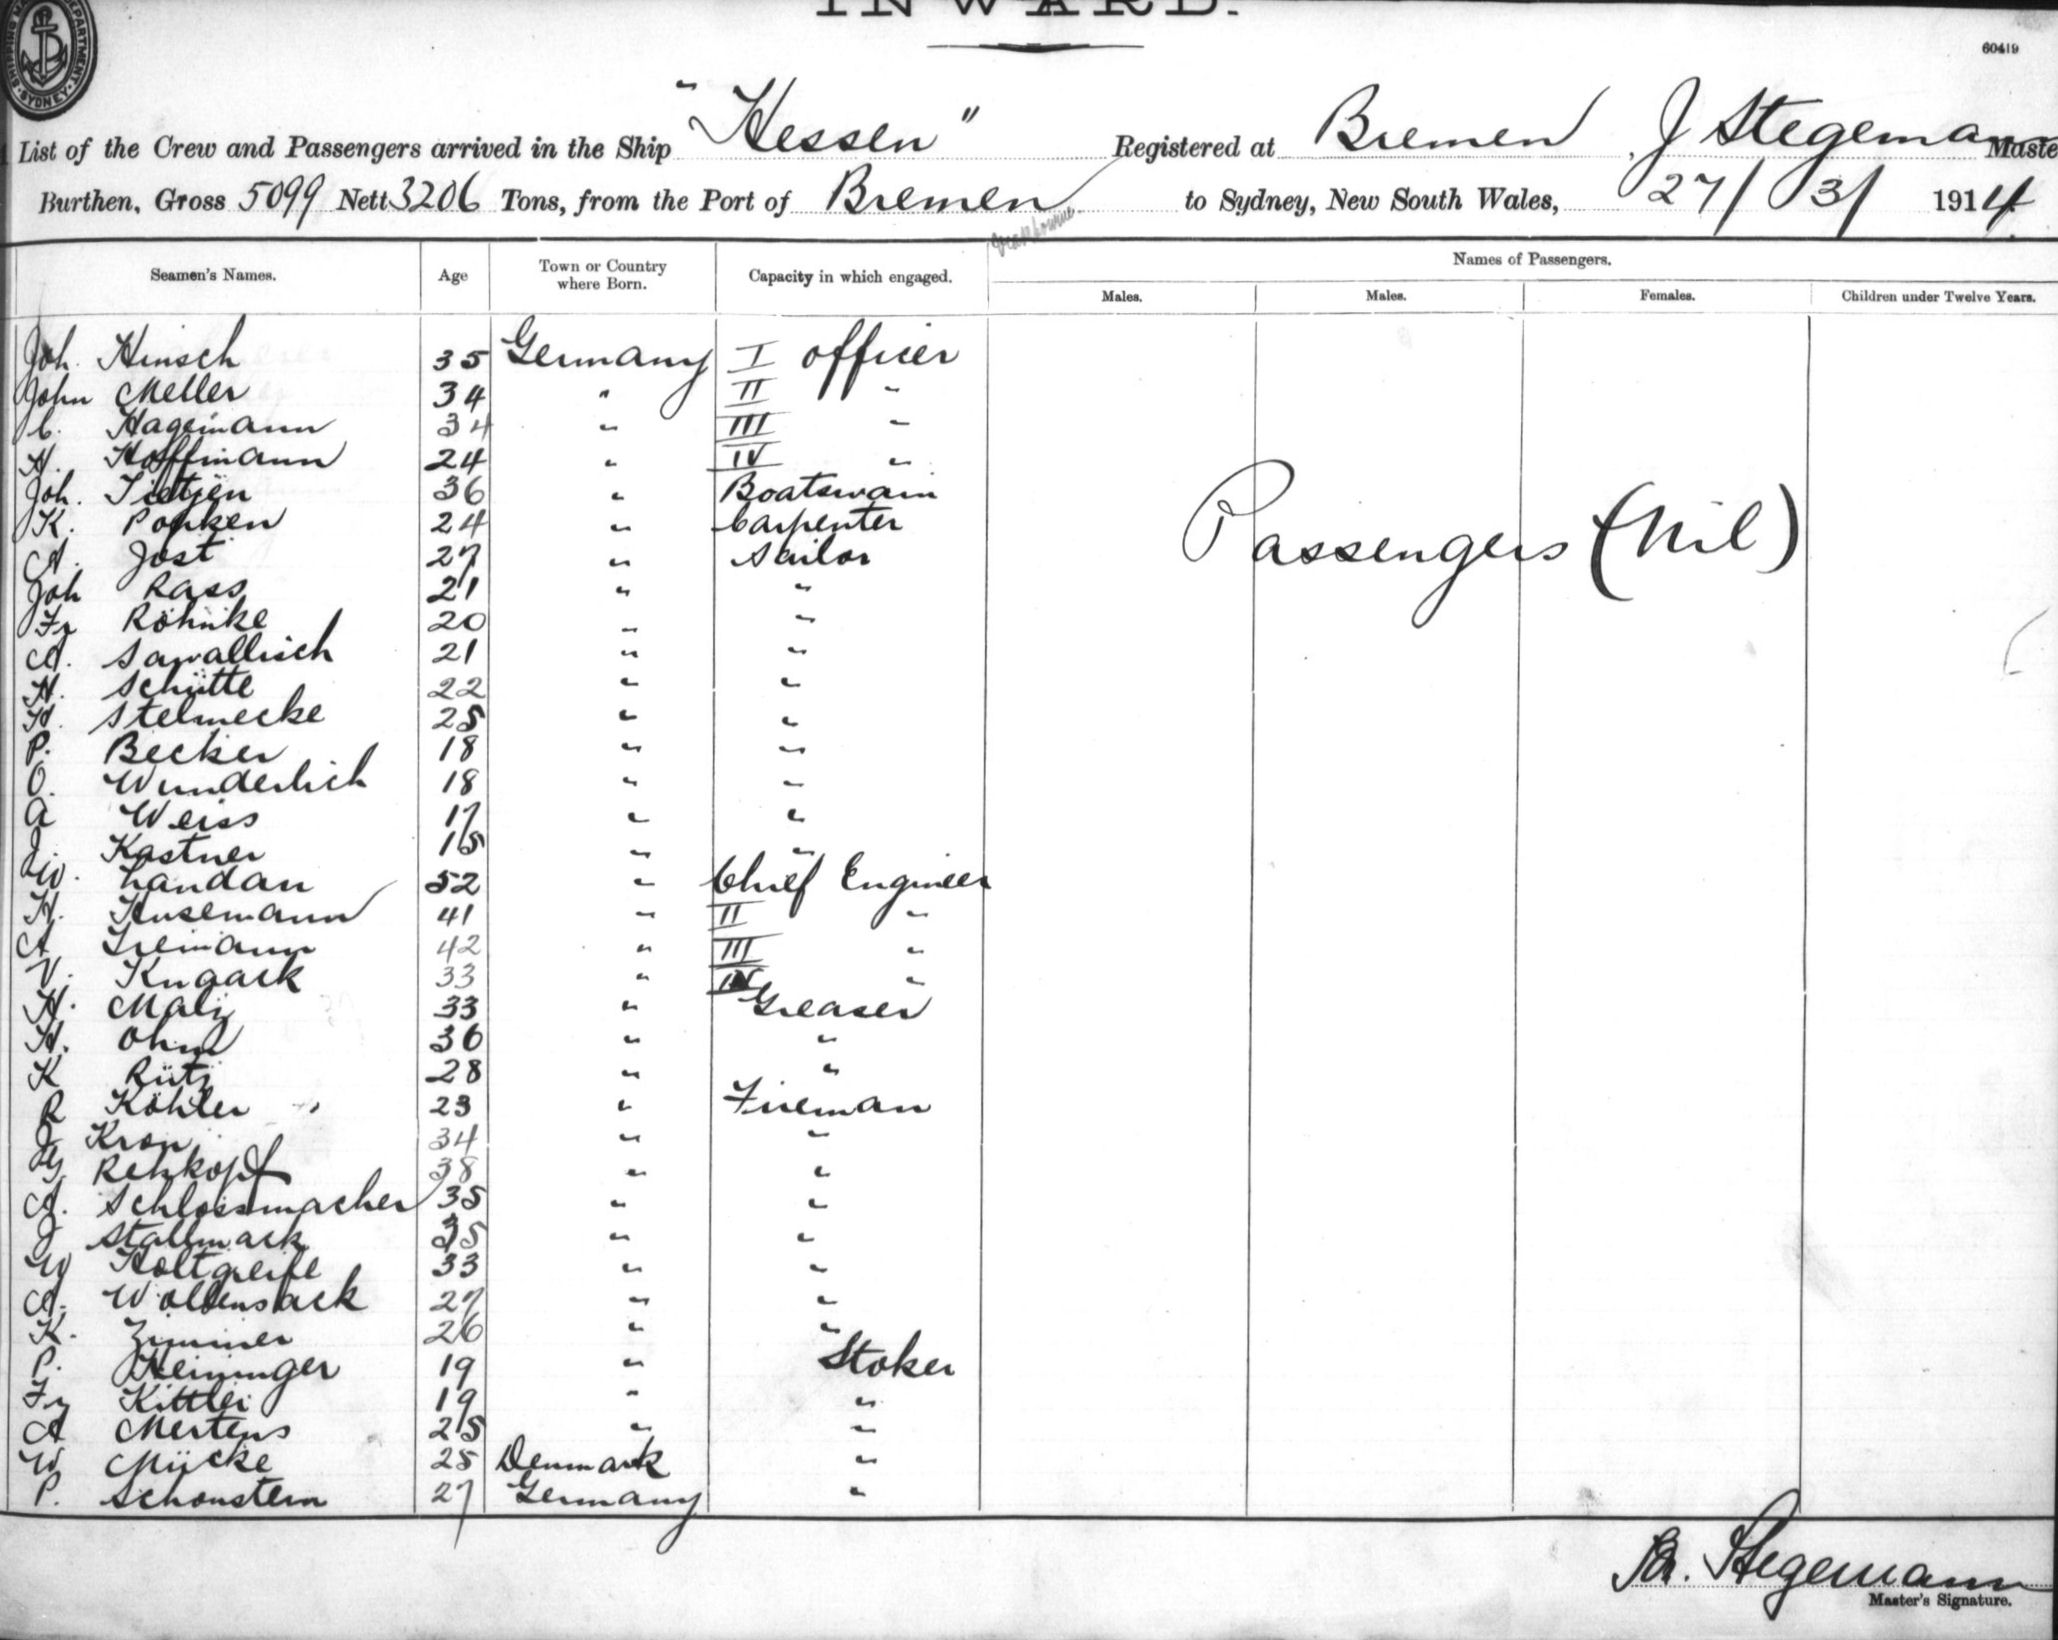 INWARD.
SHIPPING MASTER'S DEPARTMENT SYDNEY
60419
List of the Crew and Passengers arrived in the Ship "Hessen" Registered at Bremen, J Stegemann Maste
Burthen, Gross 5099 Nett 3206 Tons, from the Port of Bremen to Sydney, New South Wales, 27/3/1914
Melbourne
Seamen's Names. Age Town or Country where Born. Capacity in which engaged. Names of Passengers.
Males. Males. Females. Children under Twelve Years.
Joh. Hinsch 35 Germany I officer
John Meller 34 " II "
C. Hagemann 34 " III "
H. Hoffmann 24 " IV "
Joh. Tietjen 36 " Boatswain
K. Popken 24 " Carpenter
A. Jost 27 " Sailor
Passengers (Nil)
Joh Rass 21 " "
Fr Röhnke 20 " "
A. Sawallisch 21 " "
H. Schütte 22 " "
H. Stelmecke 25 " "
P. Becker 18 " "
O. Wunderlich 18 " "
A Weiss 17 " "
J. Kastner 15 " "
W. Landau 52 " Chief Engineer
H. Husemann 41 " II "
A Tremann 42 " III "
V. Knaack 33 " IV "
H. Malz 33 " Greaser
H. Ohm 36 " "
K Rütz 28 " "
R Köhler 23 " Fireman
J Kron 34 " "
G. Rehkopf 38 " "
A. Schlossmacher 35 " "
J Stallmack 35 " "
W Holtgreife 33 " "
A. Wollensack 27 " "
K. Zimmer 26 " "
P. Heininger 19 " Stoker
Fr Kittler 19 " "
A Mertens 25 " "
W Mücke 25 Denmark "
P. Schonstein 27 Germany "
Stegemann
Master's Signature.